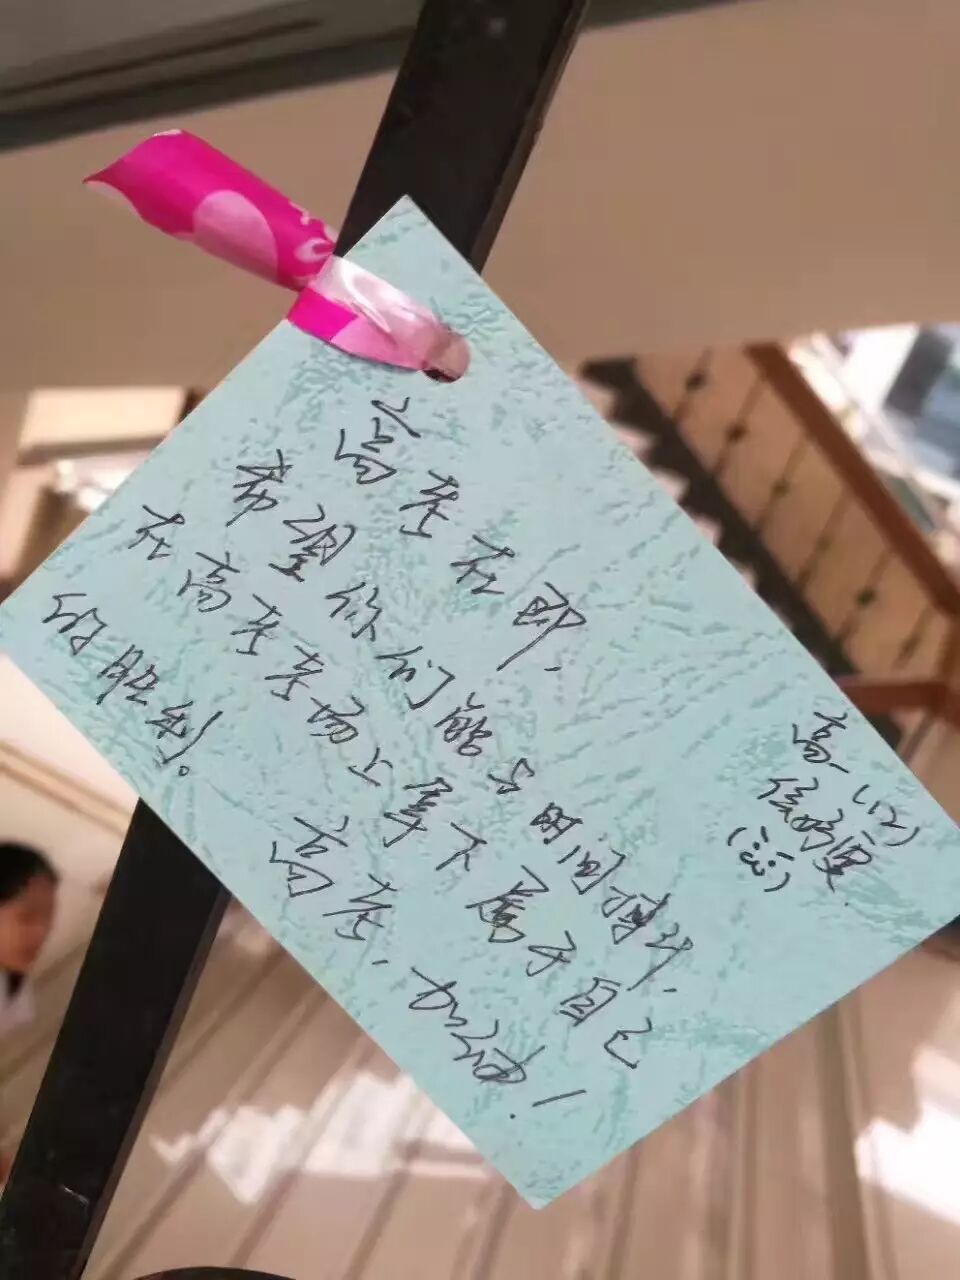 高考在即，
希望你们能与时间搏斗，
在高考考场上拿下属于自己
的胜利。
高考，加油！
高一(12)